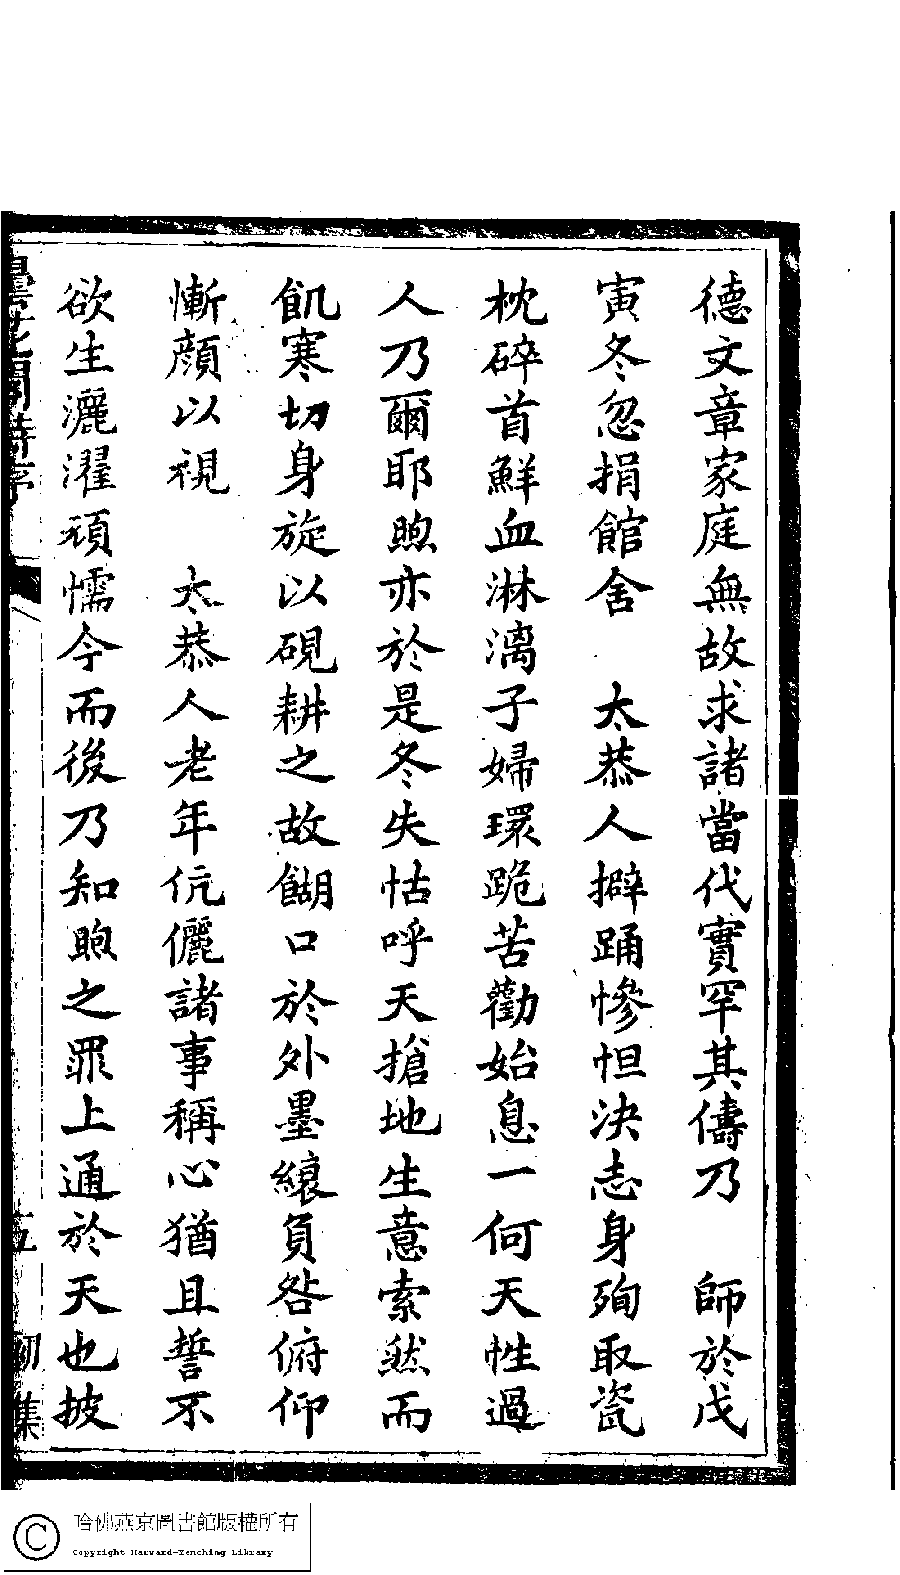 德文章家庭無故求諸當代實罕其儔乃　師於戊
寅冬忽捐館舍　太恭人擗踊慘怛決志身殉取瓷
枕碎首鮮血淋漓子婦環跪苦勸始息一何天性過
人乃爾耶煦亦於是冬失怙呼天搶地生意索然而
飢寒切身旋以硯耕之故餬口於外墨縗負咎俯仰
慚顏以視　太恭人老年伉儷諸事稱心猶且誓不
欲生灑濯頑懦今而後乃知煦之罪上通於天也披
曇花閣詩序　五　初集
哈佛燕京圖書館版權所有
Copyright Harvard-Yenching Library